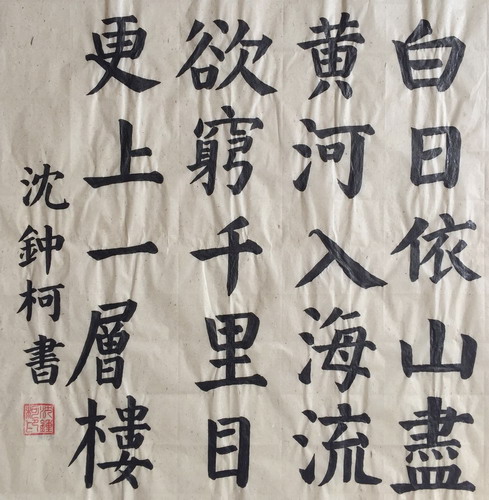 白日依山盡
黃河入海流
欲窮千里目
更上一層樓
沈鈡柯書